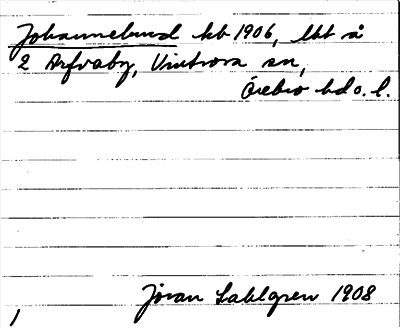 Johannelund kb 1906, lht å
2 Arfvaby, Vintrosa sn,
Örebro hd o. l.
Jöran Sahlgren 1908
/